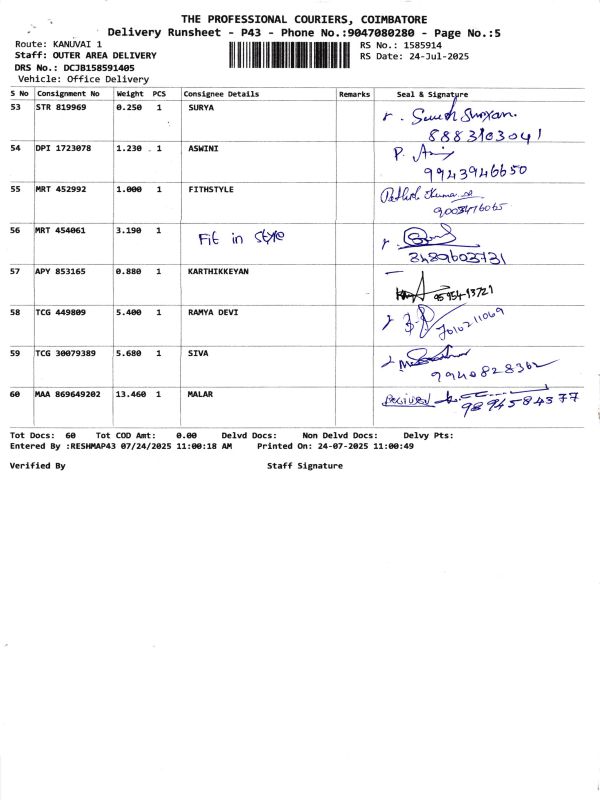 THE PROFESSIONAL COURIERS, COIMBATORE
Delivery Runsheet - P43 - Phone No.:9047080280 - Page No.:5
Route: KANUVAI 1
RS No.: 1585914
Staff: OUTER AREA DELIVERY
RS Date: 24-Jul-2025
DRS No.: DCJB158591405
Vehicle: Office Delivery
S No Consignment No Weight PCS Consignee Details Remarks Seal & Signature
53 STR 819969 0.250 1 SURYA
8883103041
54 DPI 1723078 1.230 1 ASWINI P.
9943946650
55 MRT 452992 1.000 1 FITHSTYLE
56 MRT 454061 3.190 1 Fit in style
57 APY 853165 0.880 1 KARTHIKKEYAN
58 TCG 449809 5.400 1 RAMYA DEVI
7010211069
59 TCG 30079389 5.680 1 SIVA
9940828362
60 MAA 869649202 13.460 1 MALAR
9894584377
Tot Docs: 60 Tot COD Amt: 0.00 Delvd Docs: Non Delvd Docs: Delvy Pts:
Entered By :RESHMAP43 07/24/2025 11:00:18 AM Printed On: 24-07-2025 11:00:49
Verified By Staff Signature